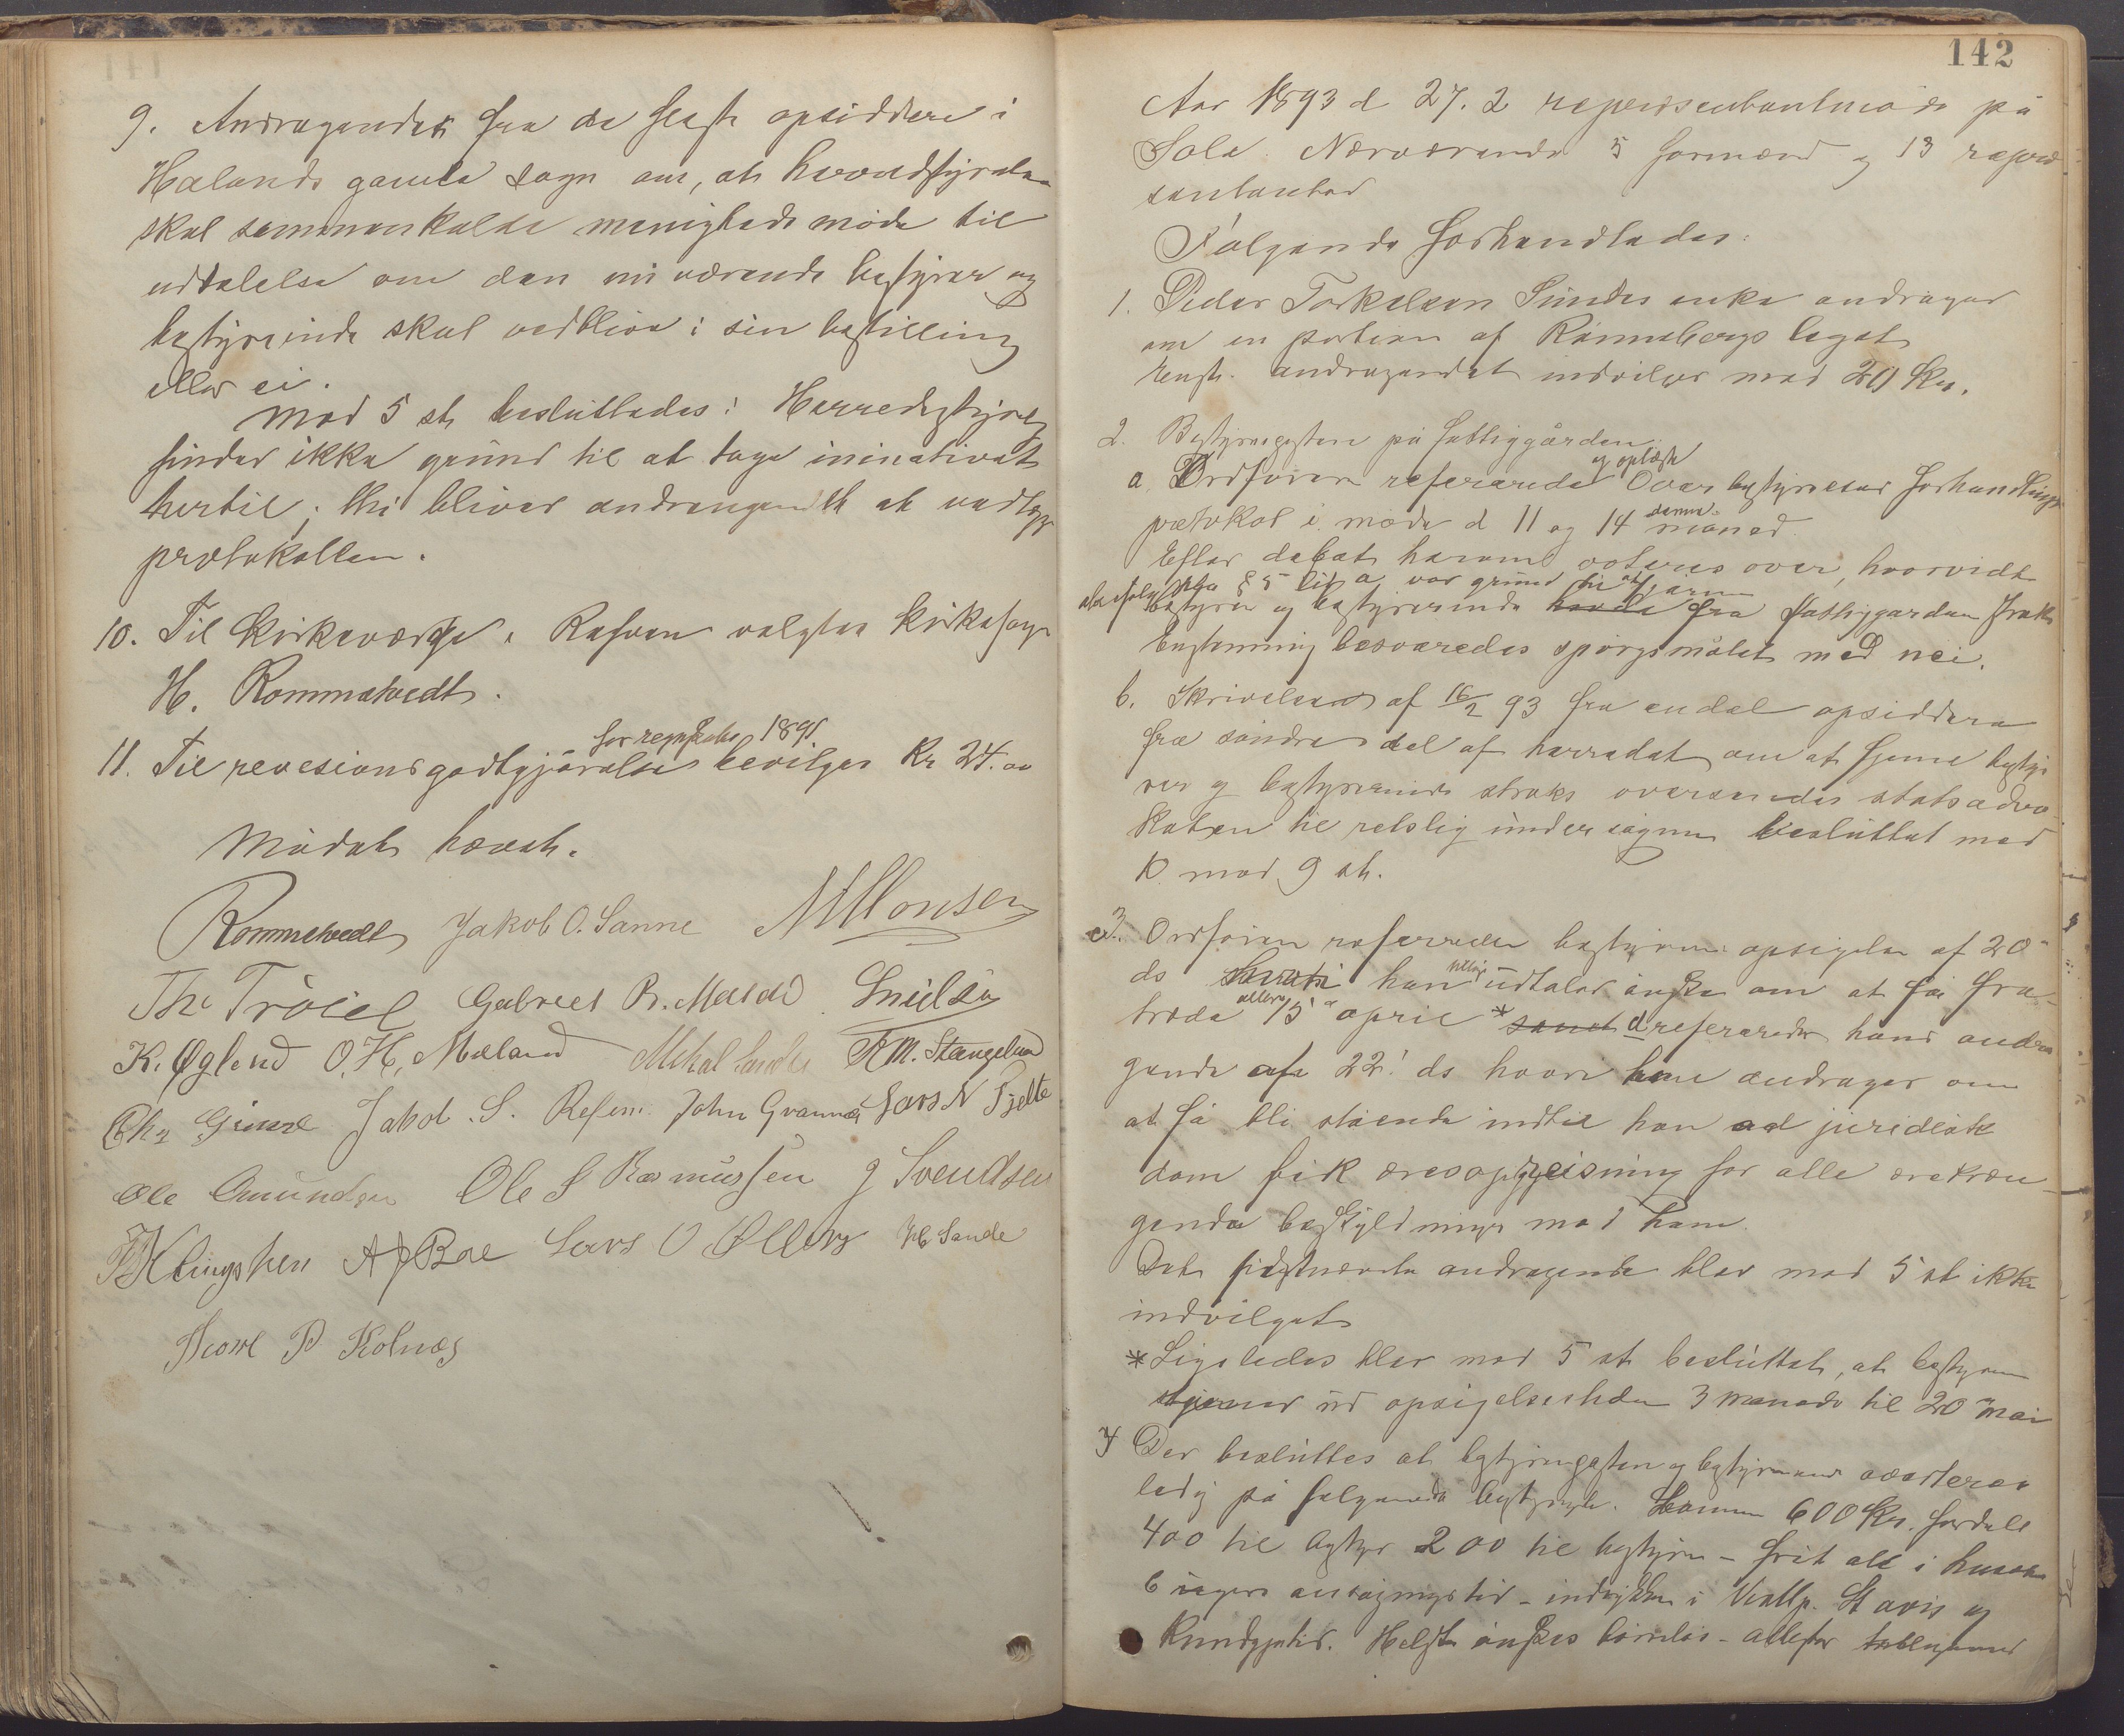 9. Andragendes fra de fleste opsiddere i
Hælands gamle sogn om, at herredstyrelsen
skal sammenkalde menigheds møde til
udtalelse om den nu værende bestyrer og
bestyrerinde skal vedblive i sin bestilling
eller ei.
Mod 5 st besluttedes: Herredsstyrelsen
finder ikke grund til at tage ininativet
hertil; thi bliver andrangendet at vedlægge
protokollen.
10. Til kirkeværge i Ræfven valgtes kirkesanger
H. Rommetvedt.
for regnskabs 1891
11. Til revesionsgodtgjørelse bevilges Kr 24.00
Mødet hævet.
Rommetvedt Jakob O. Sanne M Monsen
Th. Trøiel Gabriel B. Meladl Snielsen
K. Øglend O. H. Mæland Mikal Sunde T. M. Stangeland
Chr Grude Jakob S. Refem John Grannes Lars N Tjelte
Ole Amundsen Ole S Rasmussen J Svendsen
Klingshen A J Bøe Lars O Ølberg H Sande
Thore P Kolnes
142
Aar 1893 d 27. 2 repræsentantmøde på
Sole. Nærværende 5 formænd og 13 repræ
sentanter
Følgende forhandledes:
1. Peder Torkelsen Sundes enke andrager
om en portion af Rønnebergs legat
Enst. andragendet indvilges med 20 Kr.
2. Bestyrerposten på fattiggården.
og oplæste
a. Ordføren refererede over bestyrelsens forhandlings
denne
protokol i møde d 11 og 14 måned.
Efter debat herom voteres over, hvorvidt
ifølge § 5 litr a, var grund til at fjerne
bestyrer og bestyrerinde havde fra fattiggarden straks
Enstemmig besvaredes spørgsmålet med nei.
b. Skrivelse af 16/2 93 fra endel opsiddere
fra søndre del af herredet om at fjerne besty
rer og bestyrerinde straks oversendes statsadvo
katen til retslig undersøgelse besluttet med
10 mod 9 st.
3. Ordføren refererede bestyrerens opsigelse af 20
ds hvori han tillige udtaler ønske om at få fra
træde allere 15 april * samt d refereredes hans andra
gende af 22 ds hvori han andrager om
at få bli stående indtil han ad juridisk
dom fik æresopreisning for alle ærekræn
gende beskyldninger mod ham.
Det sidstnævnte andragende blev mod 5 st ikke
indvilget
* Ligeledes blev mod 5 st besluttet, at bestyreren
tjener ud opsigelsestiden 3 maneder til 20 mai
4 Der besluttes at bestyrerposten og bestyrerinde averteres
ledig på følgende betingelse. Lønnen 600 Kr. fordelt
400 til bestyrer 200 til bestyrerinde - frit alt i huset
6 ugers ansøgningstid - indrykkes i Vestlp. St avis og
Kundgjtid. Helst ønskes barnløs - attester